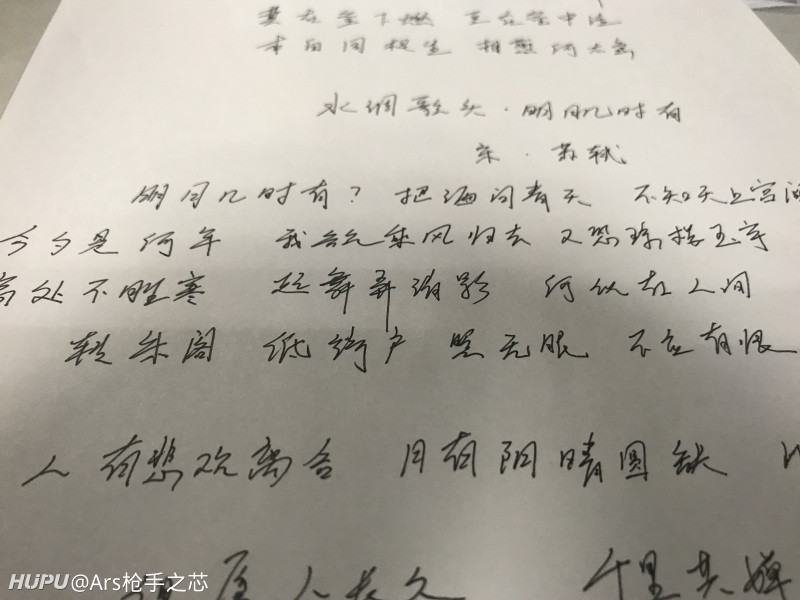 萁在釜下燃 豆在釜中泣
本自同根生 相煎何太急
水调歌头·明月几时有
宋·苏轼
明月几时有？ 把酒问青天 不知天上宫
今夕是何年 我欲乘风归去 又恐琼楼玉宇
高处不胜寒 起舞弄清影 何似在人间
转朱阁 低绮户 照无眠 不应有恨
人有悲欢离合 月有阴晴圆缺
愿人长久 千里共婵
HUPU@Ars枪手之芯